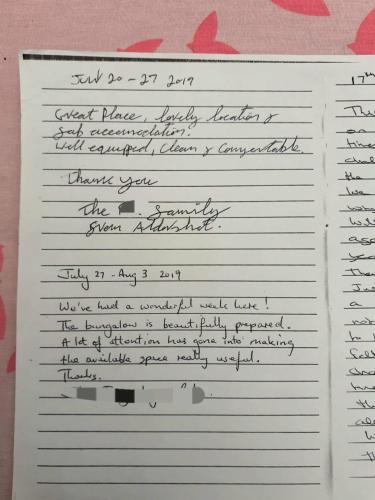 July 20 - 27 2019
Great Place, lovely location &
fab accomodation.
Well equipped, Clean & Comfortable.
Thank you
The . family
from Aldershot.
July 27 - Aug 3 2019
We've had a wonderful week here!
The bungalow is beautifully prepared.
A lot of attention has gone into making
the available space really useful.
Thanks.
17th
on
the
we
a